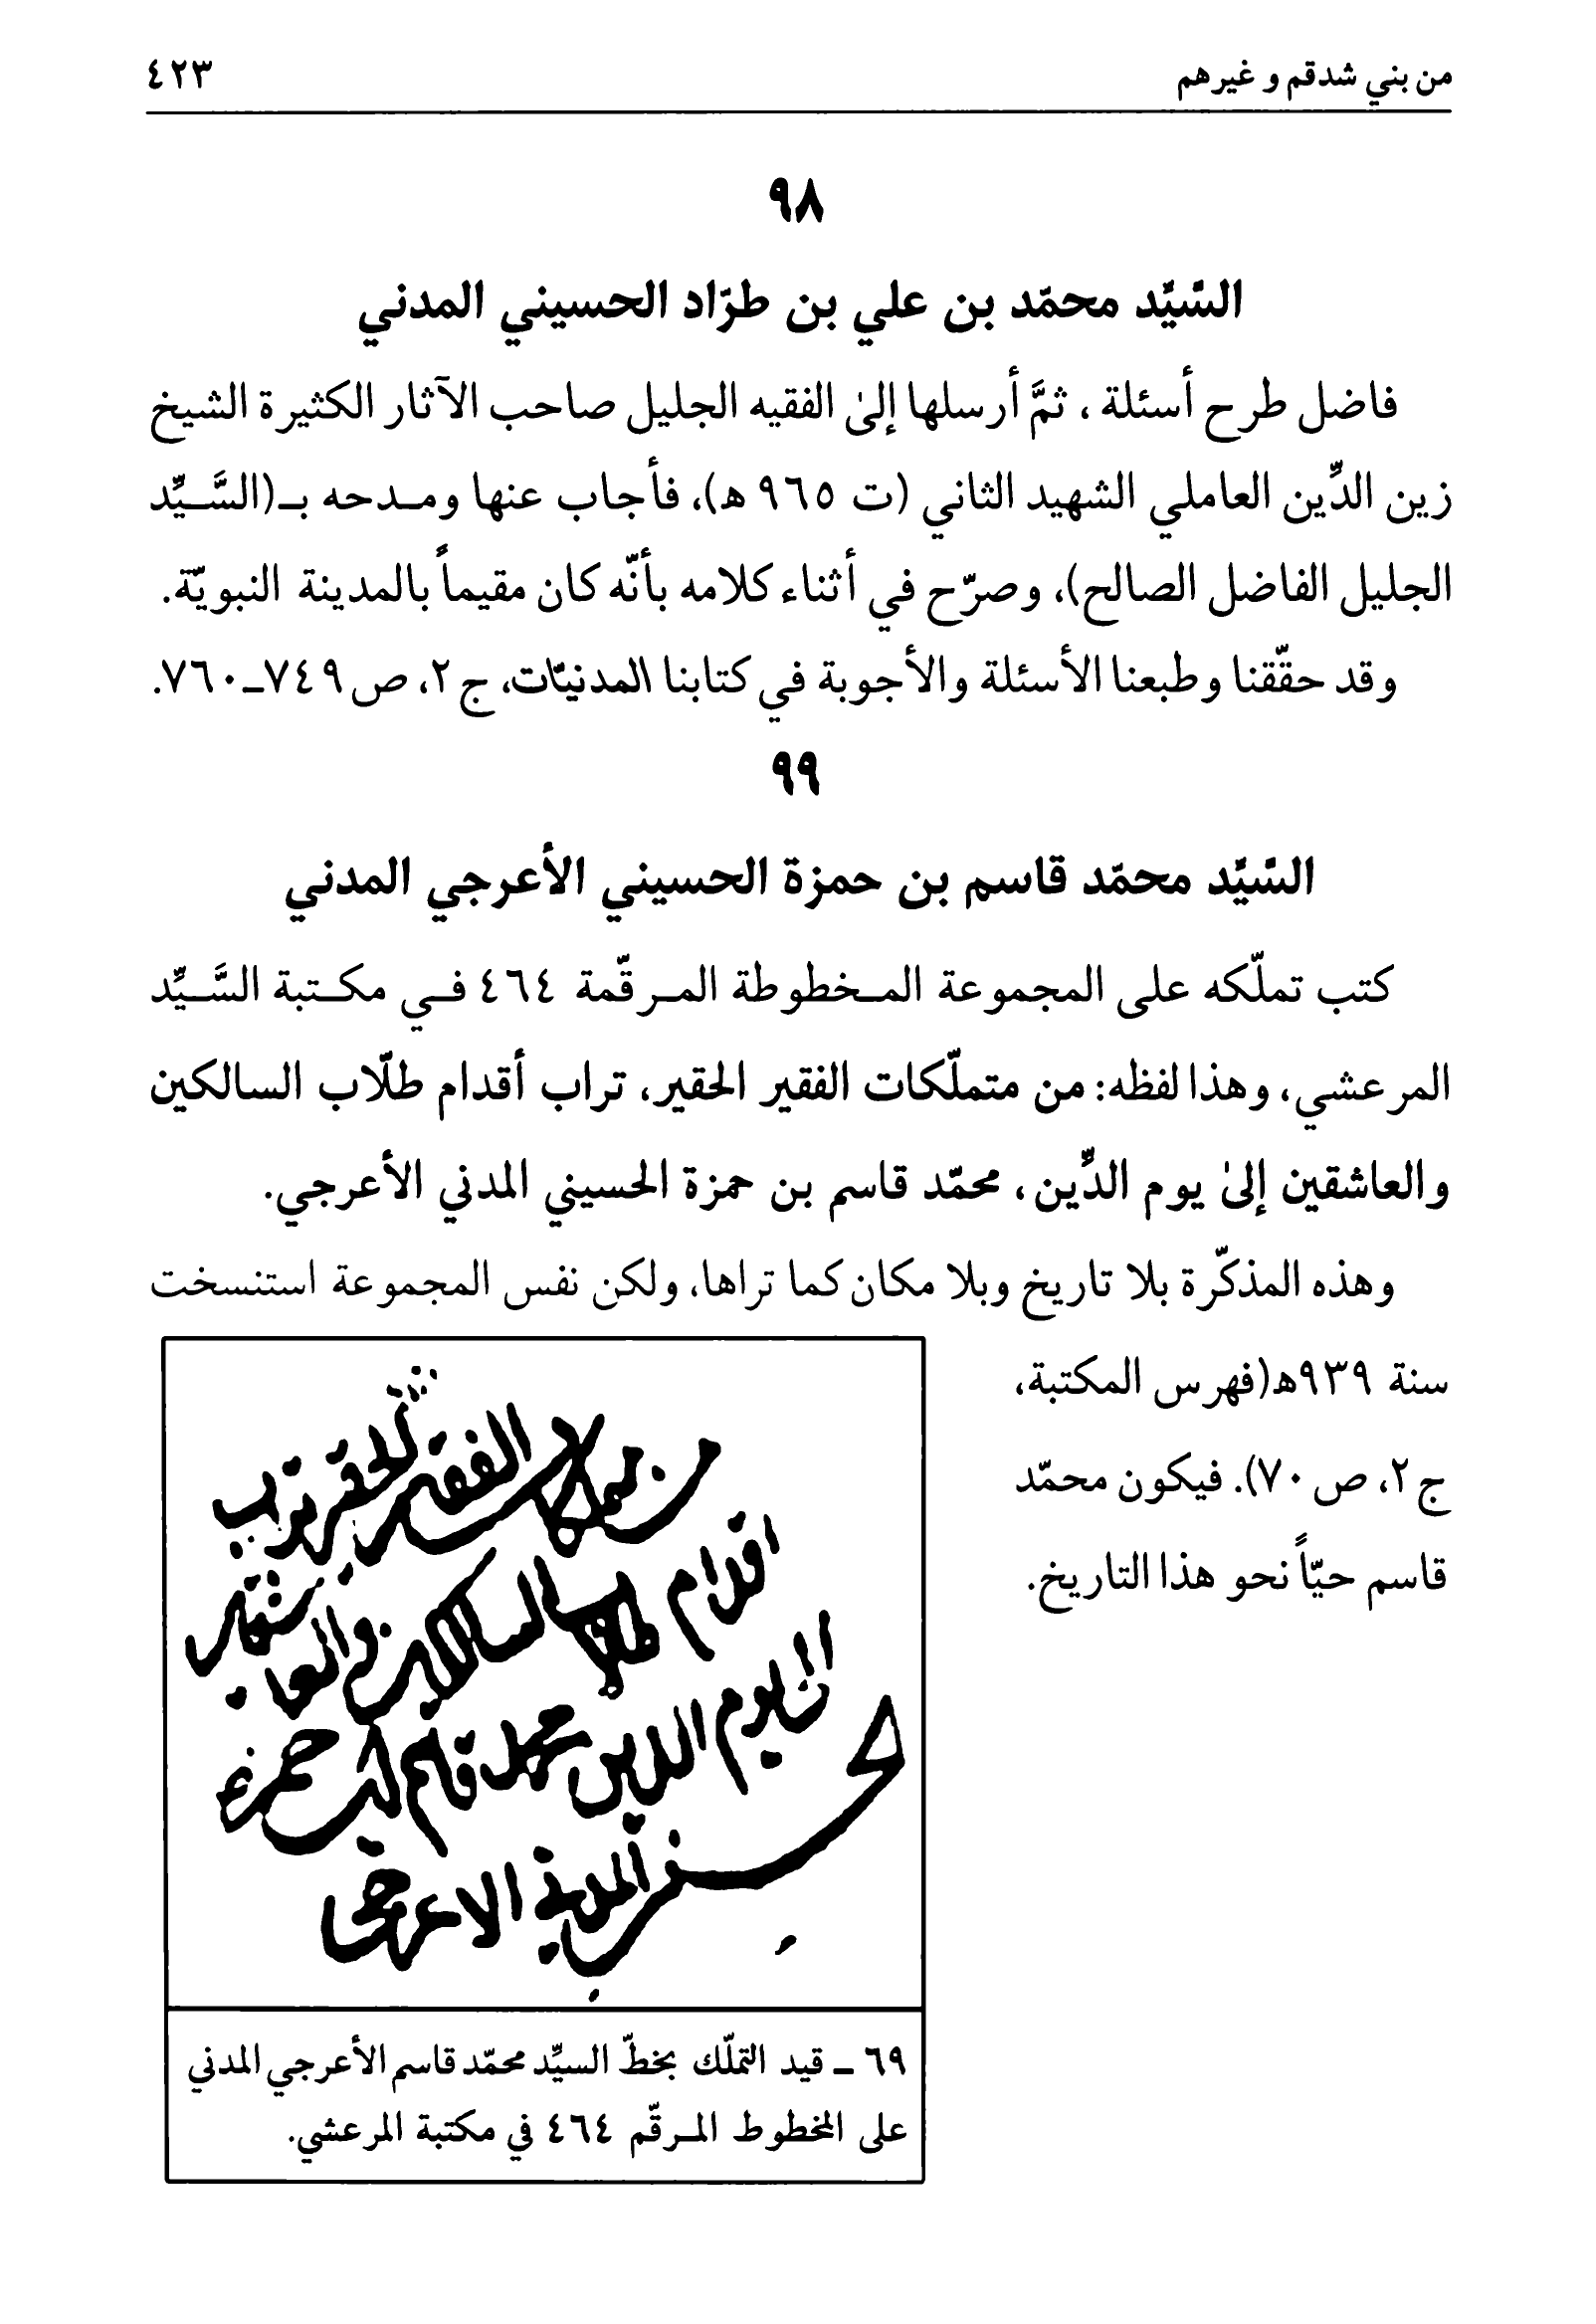 من بني شدقم و غيرهم ٤٢٣
٩٨
السَّيِّد محمّد بن علي بن طرّاد الحسيني المدني
فاضل طرح أسئلة ، ثمَّ أرسلها إلىٰ الفقيه الجليل صاحب الآثار الكثيرة الشيخ
زين الدِّين العاملي الشهيد الثاني (ت ٩٦٥ هـ)، فأجاب عنها ومـدحه بـ(السَّـيِّد
الجليل الفاضل الصالح)، وصرّح في أثناء كلامه بأنّه كان مقيماً بالمدينة النبويّة.
وقد حقّقنا وطبعنا الأسئلة والأجوبة في كتابنا المدنيّات، ج ٢، ص ٧٤٩ـ٧٦٠.
٩٩
السَّيِّد محمّد قاسم بن حمزة الحسيني الأعرجي المدني
كتب تملّكه على المجموعة المـخطوطة المـرقّمة ٤٦٤ فـي مكـتبة السَّـيِّد
المرعشي، وهذا لفظه: من متملّكات الفقير الحقير، تراب أقدام طلّاب السالكين
والعاشقين إلىٰ يوم الدِّين ، محمّد قاسم بن حمزة الحسيني المدني الأعرجي.
وهذه المذكّرة بلا تاريخ وبلا مكان كما تراها، ولكن نفس المجموعة استنسخت
سنة ٩٣٩هـ(فهرس المكتبة،
ج ٢، ص ٧٠). فيكون محمّد
قاسم حيّاً نحو هذا التاريخ.
من متملكات الفقير الحقير تراب
اقدام طلاب السالكين والعاشقين
الى يوم الدين محمد قاسم ابن حمزة
الحسيني المدني الاعرجي
٦٩ ـ قيد التملّك بخطّ السيِّد محمّد قاسم الأعرجي المدني
على المخطوط المـرقّم ٤٦٤ في مكتبة المرعشي.